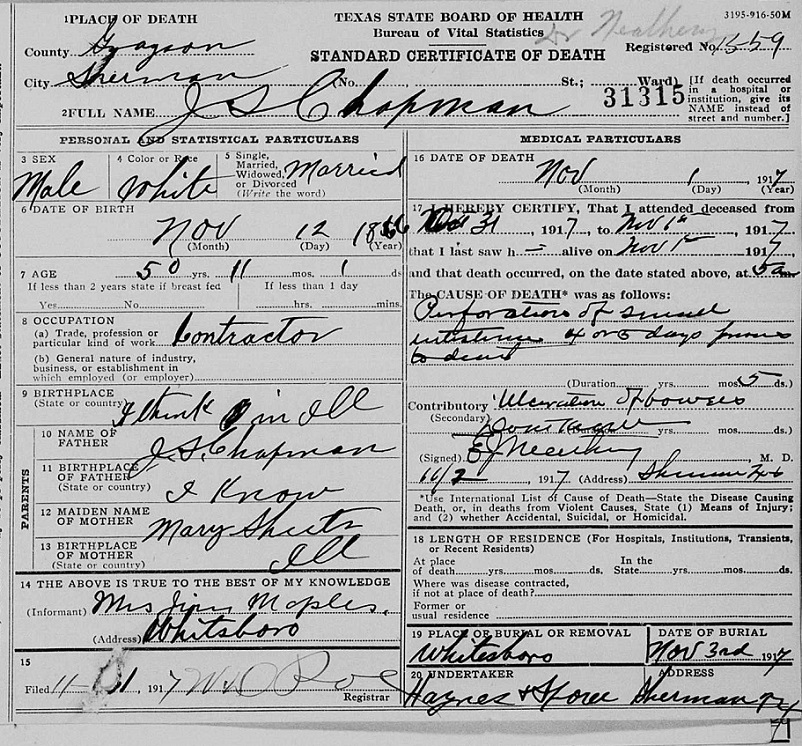 TEXAS STATE BOARD OF HEALTH
Bureau of Vital Statistics
STANDARD CERTIFICATE OF DEATH
3195-916-50M
Registered No. 1559
31315
1 PLACE OF DEATH
County Grayson
City Sherman No. St.; Ward)
[If death occurred in a hospital or institution, give its NAME instead of street and number.]
2 FULL NAME J S Chapman
PERSONAL AND STATISTICAL PARTICULARS
3 SEX Male
4 Color or Race White
5 Single, Married, Widowed, or Divorced (Write the word) Married
6 DATE OF BIRTH
Nov 12 1866
(Month) (Day) (Year)
7 AGE 50 yrs. 11 mos. 1 ds
If less than 2 years state if breast fed
Yes No
If less than 1 day
hrs. mins.
8 OCCUPATION
(a) Trade, profession or particular kind of work Contractor
(b) General nature of industry, business, or establishment in which employed (or employer)
9 BIRTHPLACE
(State or country) I think in Ill
PARENTS
10 NAME OF FATHER J. S. Chapman
11 BIRTHPLACE OF FATHER
(State or country) I Know
12 MAIDEN NAME OF MOTHER Mary Sheets
13 BIRTHPLACE OF MOTHER
(State or country) Ill
14 THE ABOVE IS TRUE TO THE BEST OF MY KNOWLEDGE
(Informant) Mrs Jim Maples,
(Address) Whitsboro
15
Filed 11- 1, 1917
Registrar
MEDICAL PARTICULARS
16 DATE OF DEATH
Nov 1 1917
(Month) (Day) (Year)
17 I HEREBY CERTIFY, That I attended deceased from
31, 1917, to Nov 1st, 1917
that I last saw h— alive on Nov 1st 1917,
and that death occurred, on the date stated above, at 5 am
The CAUSE OF DEATH* was as follows:
Perforation of small
intestine 4 or 5 days previous
to death
(Duration yrs. mos. 5 ds.)
Contributory Ulceration of bowels
(Secondary)
(Duration yrs. mos. ds.)
(Signed) M. D.
11/2, 1917 (Address) Sherman Tex
*Use International List of Cause of Death—State the Disease Causing
Death, or, in deaths from Violent Causes, State (1) Means of Injury;
and (2) whether Accidental, Suicidal, or Homicidal.
18 LENGTH OF RESIDENCE (For Hospitals, Institutions, Transients,
or Recent Residents)
At place of death yrs. mos. ds. In the State yrs. mos. ds.
Where was disease contracted,
if not at place of death?
Former or
usual residence
19 PLACE OR BURIAL OR REMOVAL
Whitesboro
DATE OF BURIAL
Nov 3rd 1917
20 UNDERTAKER
ADDRESS
Sherman Tx